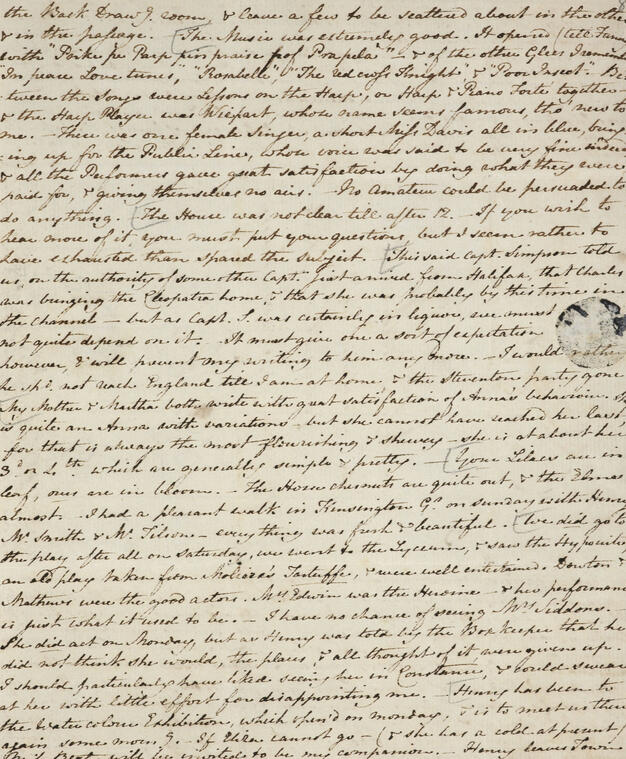 the Back Draw g. room, & leave a few to be scattered about in the other
& in the passage. The Music was extremely good. It opened (tell Fanny)
with "Poike pe Parp pin praise pof Prapela" — & of the other Glees I remember
In peace Love tunes", "Rosabelle", "The red cross Knight", & "Poor Insect". Be-
tween the Songs were Lessons on the Harp, or Harp & Piano Forte together—
& the Harp Player was Wiepart, whose name seems famous, tho' new to
me. — There was one female Singer, a short Miss Davis all in blue, bring-
ing up for the Public Line, whose voice was said to be very fine indeed
& all the Performers gave great satisfaction by doing what they were
paid for, & giving themselves no airs. — No Amateur could be persuaded to
do anything. The House was not clear till after 12. — If you wish to
hear more of it, you must put your questions, but I seem rather to
have exhausted than spared the subject. This said Capt. Simpson told
us, on the authority of some other Capt. just arrived from Halifax, that Charles
was bringing the Cleopatra home, & that she was probably by this time in
the Channel — but as Capt. S. was certainly in liquor, we must
not quite depend on it. — It must give one a sort of expectation
however, & will prevent my writing to him any more. — I would rather
he shd. not reach England till I am at home, & the Steventon party gone
My Mother & Martha both write with great satisfaction of Anna's behaviour. S
is quite an Anna with variations — but she cannot have reached her last,
— for that is always the most flourishing & shewey — she is at about her
3d or 4th which are generally simple & pretty. — Your Lilacs are in
leaf, ours are in bloom. — The Horse chesnuts are quite out, & the Elms
almost. — I had a pleasant walk in Kensington Gs. on Sunday with Henry
Mr Smith & Mr. Tilson — everything was fresh & beautiful. We did go to
the play after all on Saturday, we went to the Lyceum, & saw the Hypocrite,
an old play taken from Moliere's Tartuffe, & were well entertained. Dowton &
Mathews were the good actors. Mrs Edwin was the Heroine — & her performance
is just what it used to be. — I have no chance of seeing Mrs Siddons. —
She did act on Monday, but as Henry was told by the Box keeper that he
did not think she would, the places, & all thought of it were given up.
I should particularly have liked seeing her in Constance, & could swear
at her with little effort for disappointing me. Henry has been to
the Watercolour Exhibition, which open'd on monday, & is to meet us there
again some morn g. — If Eliza cannot go — (& she has a cold at present)
Miss Beaty will be invited to be my companion. — Henry leaves Town